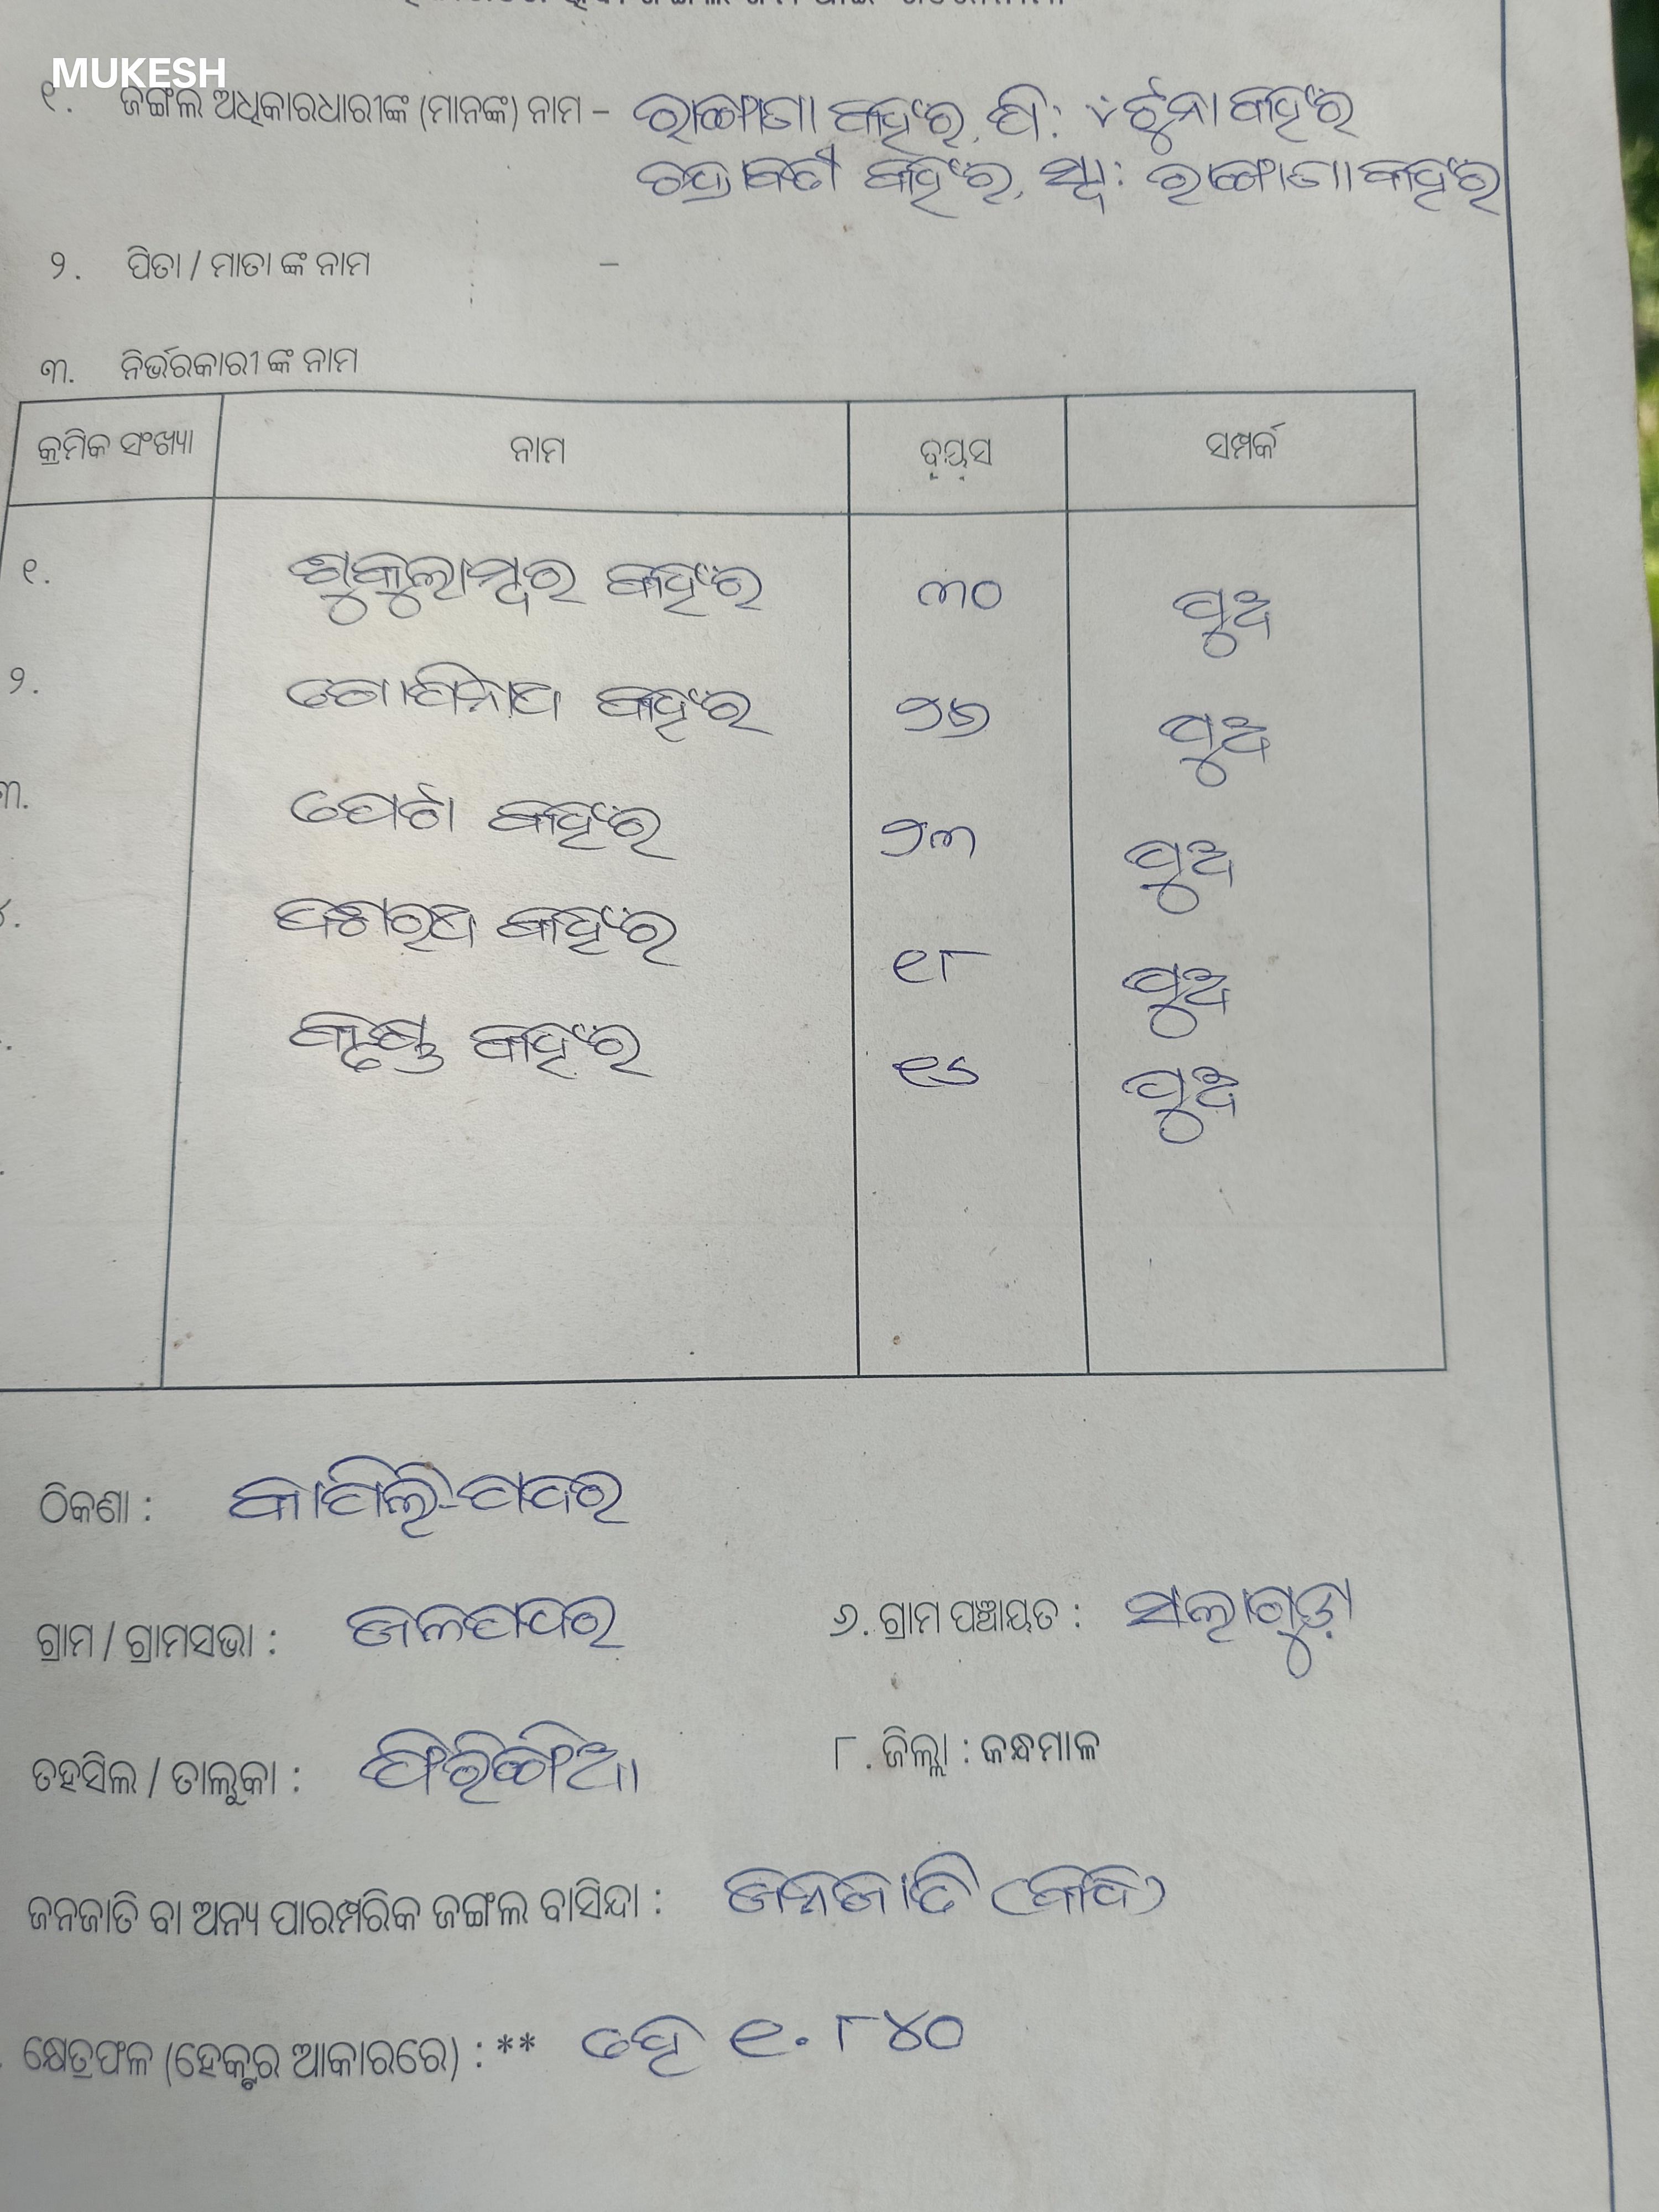 MUKESH
୧. ଜଙ୍ଗଲ ଅଧିକାରଧାରୀଙ୍କ (ମାନଙ୍କ) ନାମ – କହଁର, ପି: ୪ ଟୁନା କହଁର
କହଁର, ସ୍ୱା: କହଁର
୨. ପିତା / ମାତା ଙ୍କ ନାମ –
୩. ନିର୍ଭରକାରୀ ଙ୍କ ନାମ
କ୍ରମିକ ସଂଖ୍ୟା ନାମ ବୟସ ସମ୍ପର୍କ
୧. ଶୁକୁଲାମ୍ବର କହଁର ୩୦ ପୁଅ
୨. ଗୋପିନାଥ କହଁର ୨୬ ପୁଅ
୩. କହଁର ୨୩ ପୁଅ
୪. ଦଶରଥ କହଁର ୧୮ ପୁଅ
କୃଷ୍ଣ କହଁର ପୁଅ
ଠିକଣା : କାପିଲି-ପଦର
ଗ୍ରାମ / ଗ୍ରାମସଭା : ଜଳପଦର ୬. ଗ୍ରାମ ପଞ୍ଚାୟତ : ସଲାଗୁଡ଼ା
ତହସିଲ / ତାଲୁକା : ଫିରିଙ୍ଗିଆ ୮. ଜିଲ୍ଲା : କନ୍ଧମାଳ
ଜନଜାତି ବା ଅନ୍ୟ ପାରମ୍ପରିକ ଜଙ୍ଗଲ ବାସିନ୍ଦା : ଜନଜାତି
କ୍ଷେତ୍ରଫଳ (ହେକ୍ଟର ଆକାରରେ) : ** ହେ ୧.୮୪୦